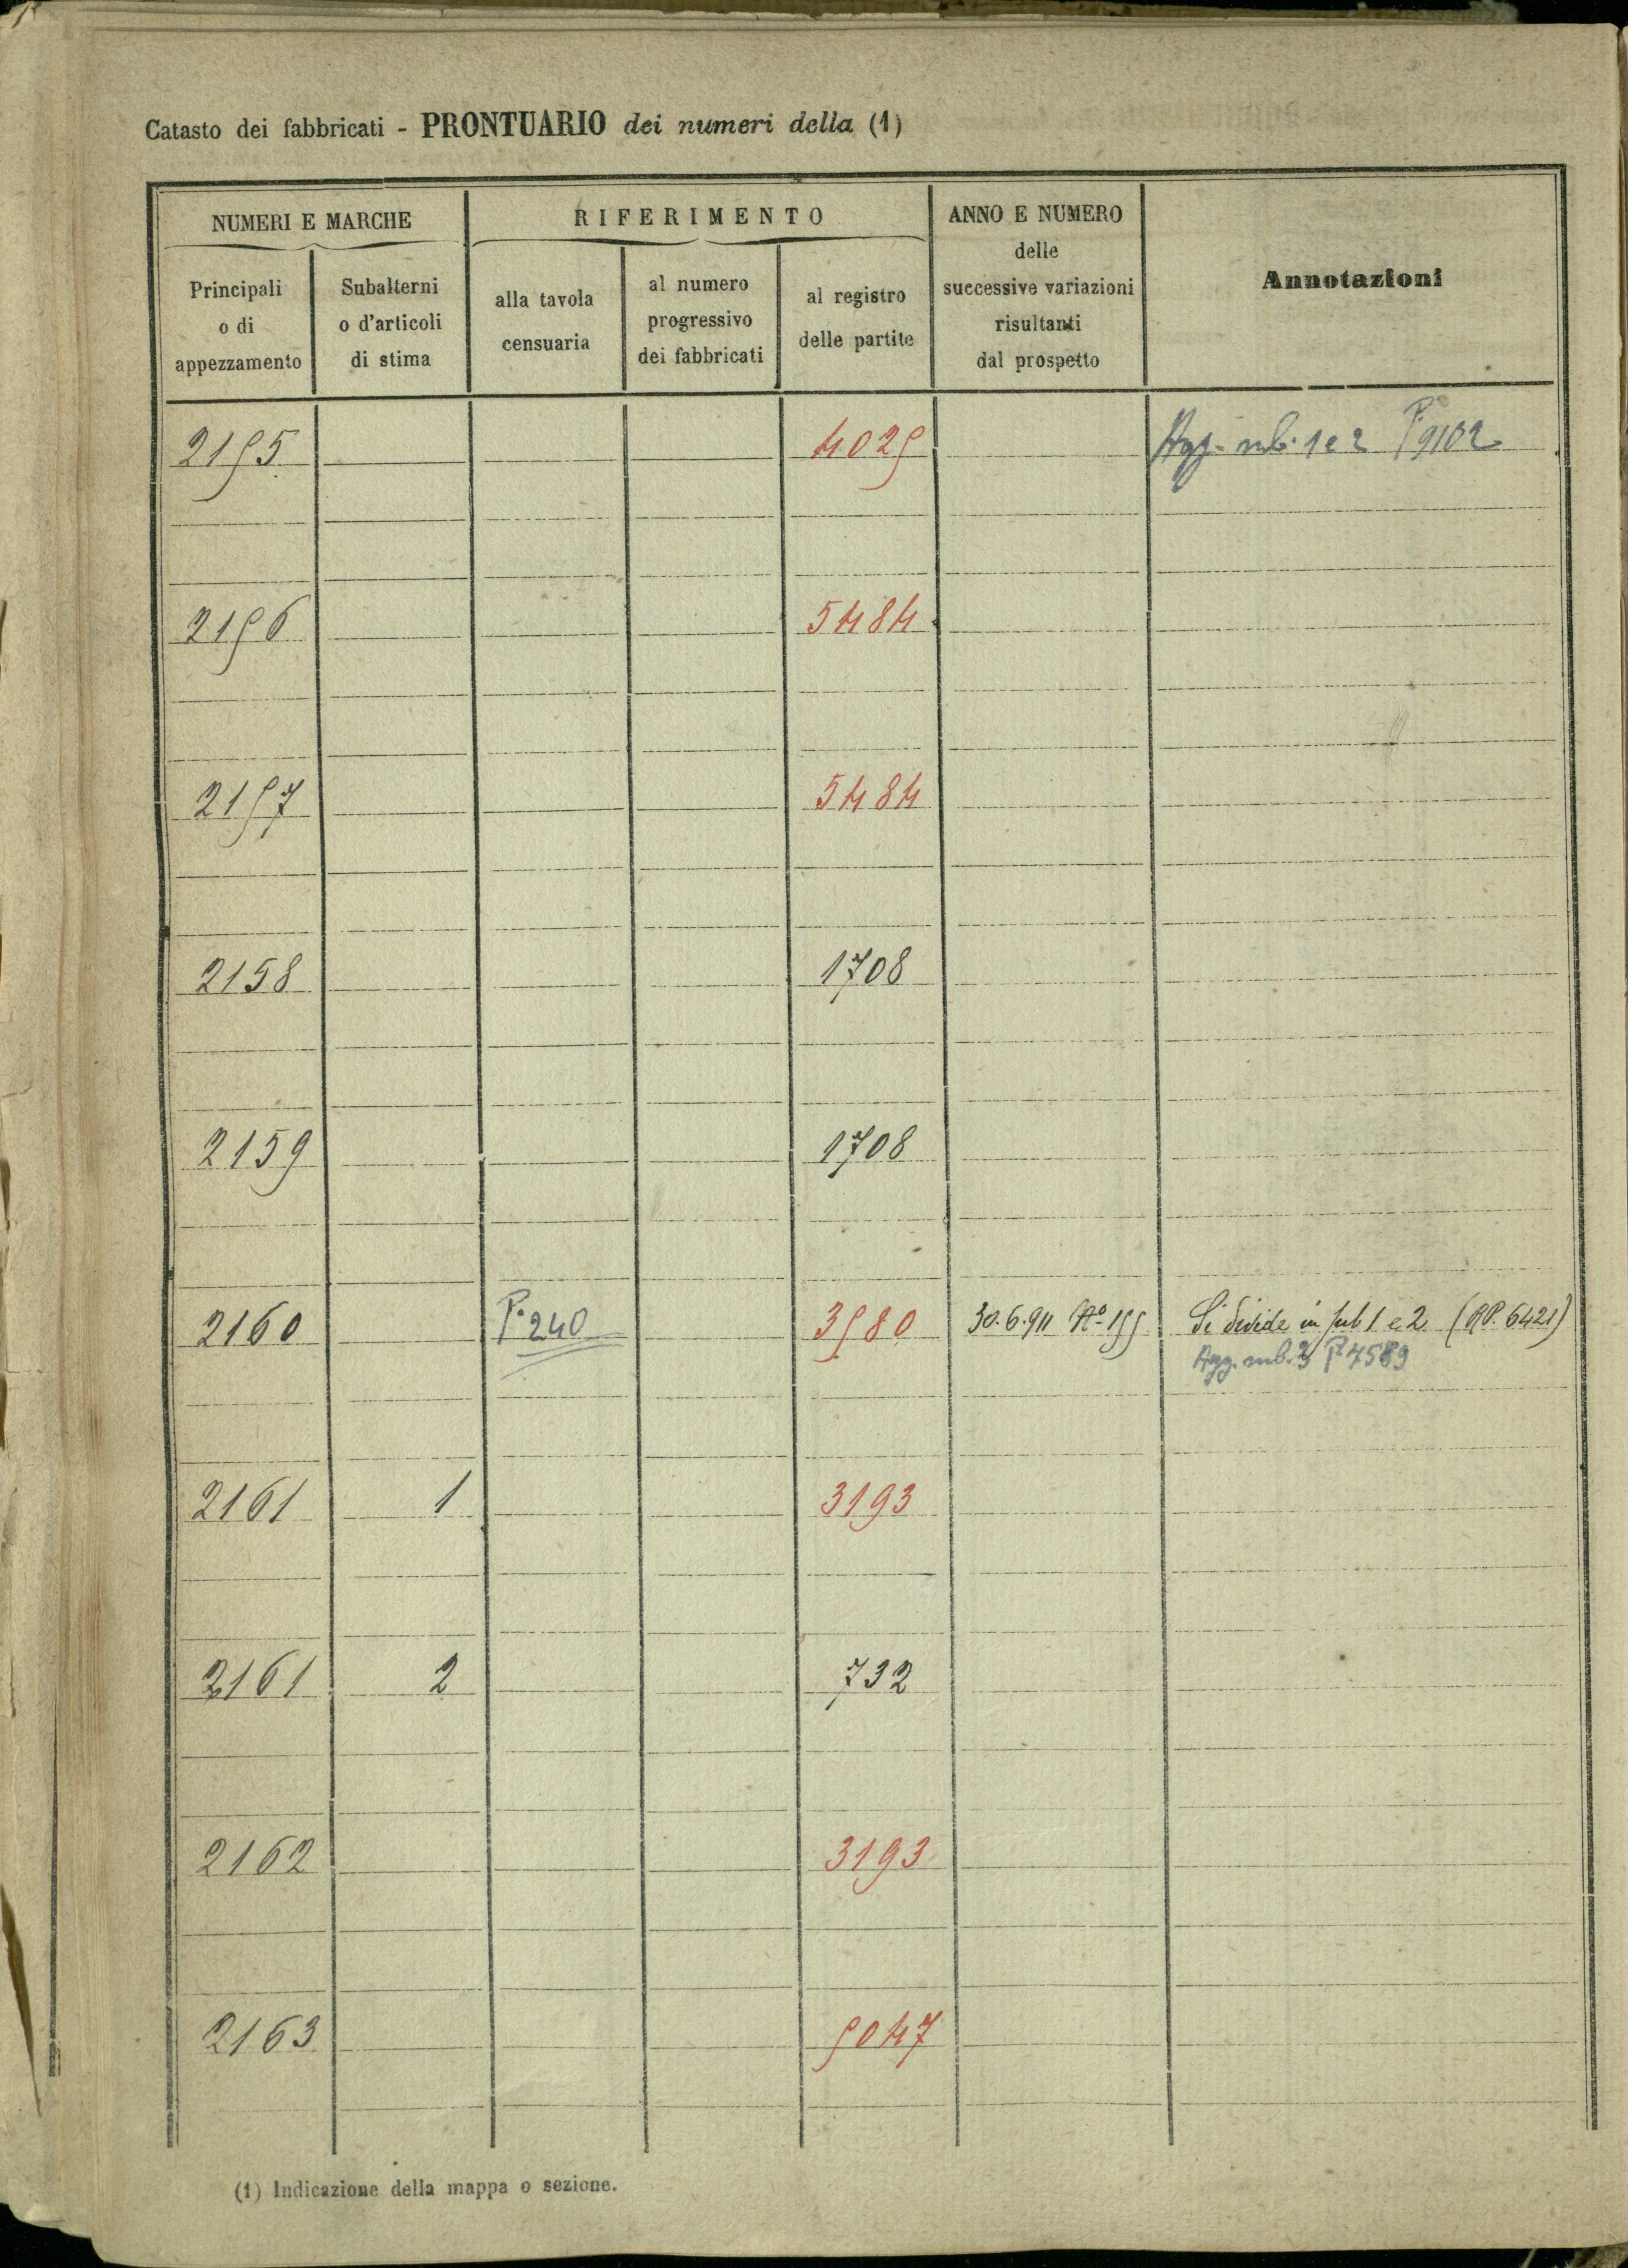 Catasto dei fabbricati - PRONTUARIO dei numeri della (1)
NUMERI E MARCHE RIFERIMENTO ANNO E NUMERO delle successive variazioni risultanti dal prospetto Annotazioni
Principali o di appezzamento Subalterni o d'articoli di stima alla tavola censuaria al numero progressivo dei fabbricati al registro delle partite
2155 4025 Agg. sub. 1 e 2 P. 9102
2156 5484
2157 5484
2158 1708
2159 1708
2160 P. 240 3580 30.6.911 No 155 Si divide in sub 1 e 2 (RP. 6421)
Agg. sub. 3 P. 7589
2161 1 3193
2161 2 732
2162 3193
2163 5047
(1) Indicazione della mappa o sezione.